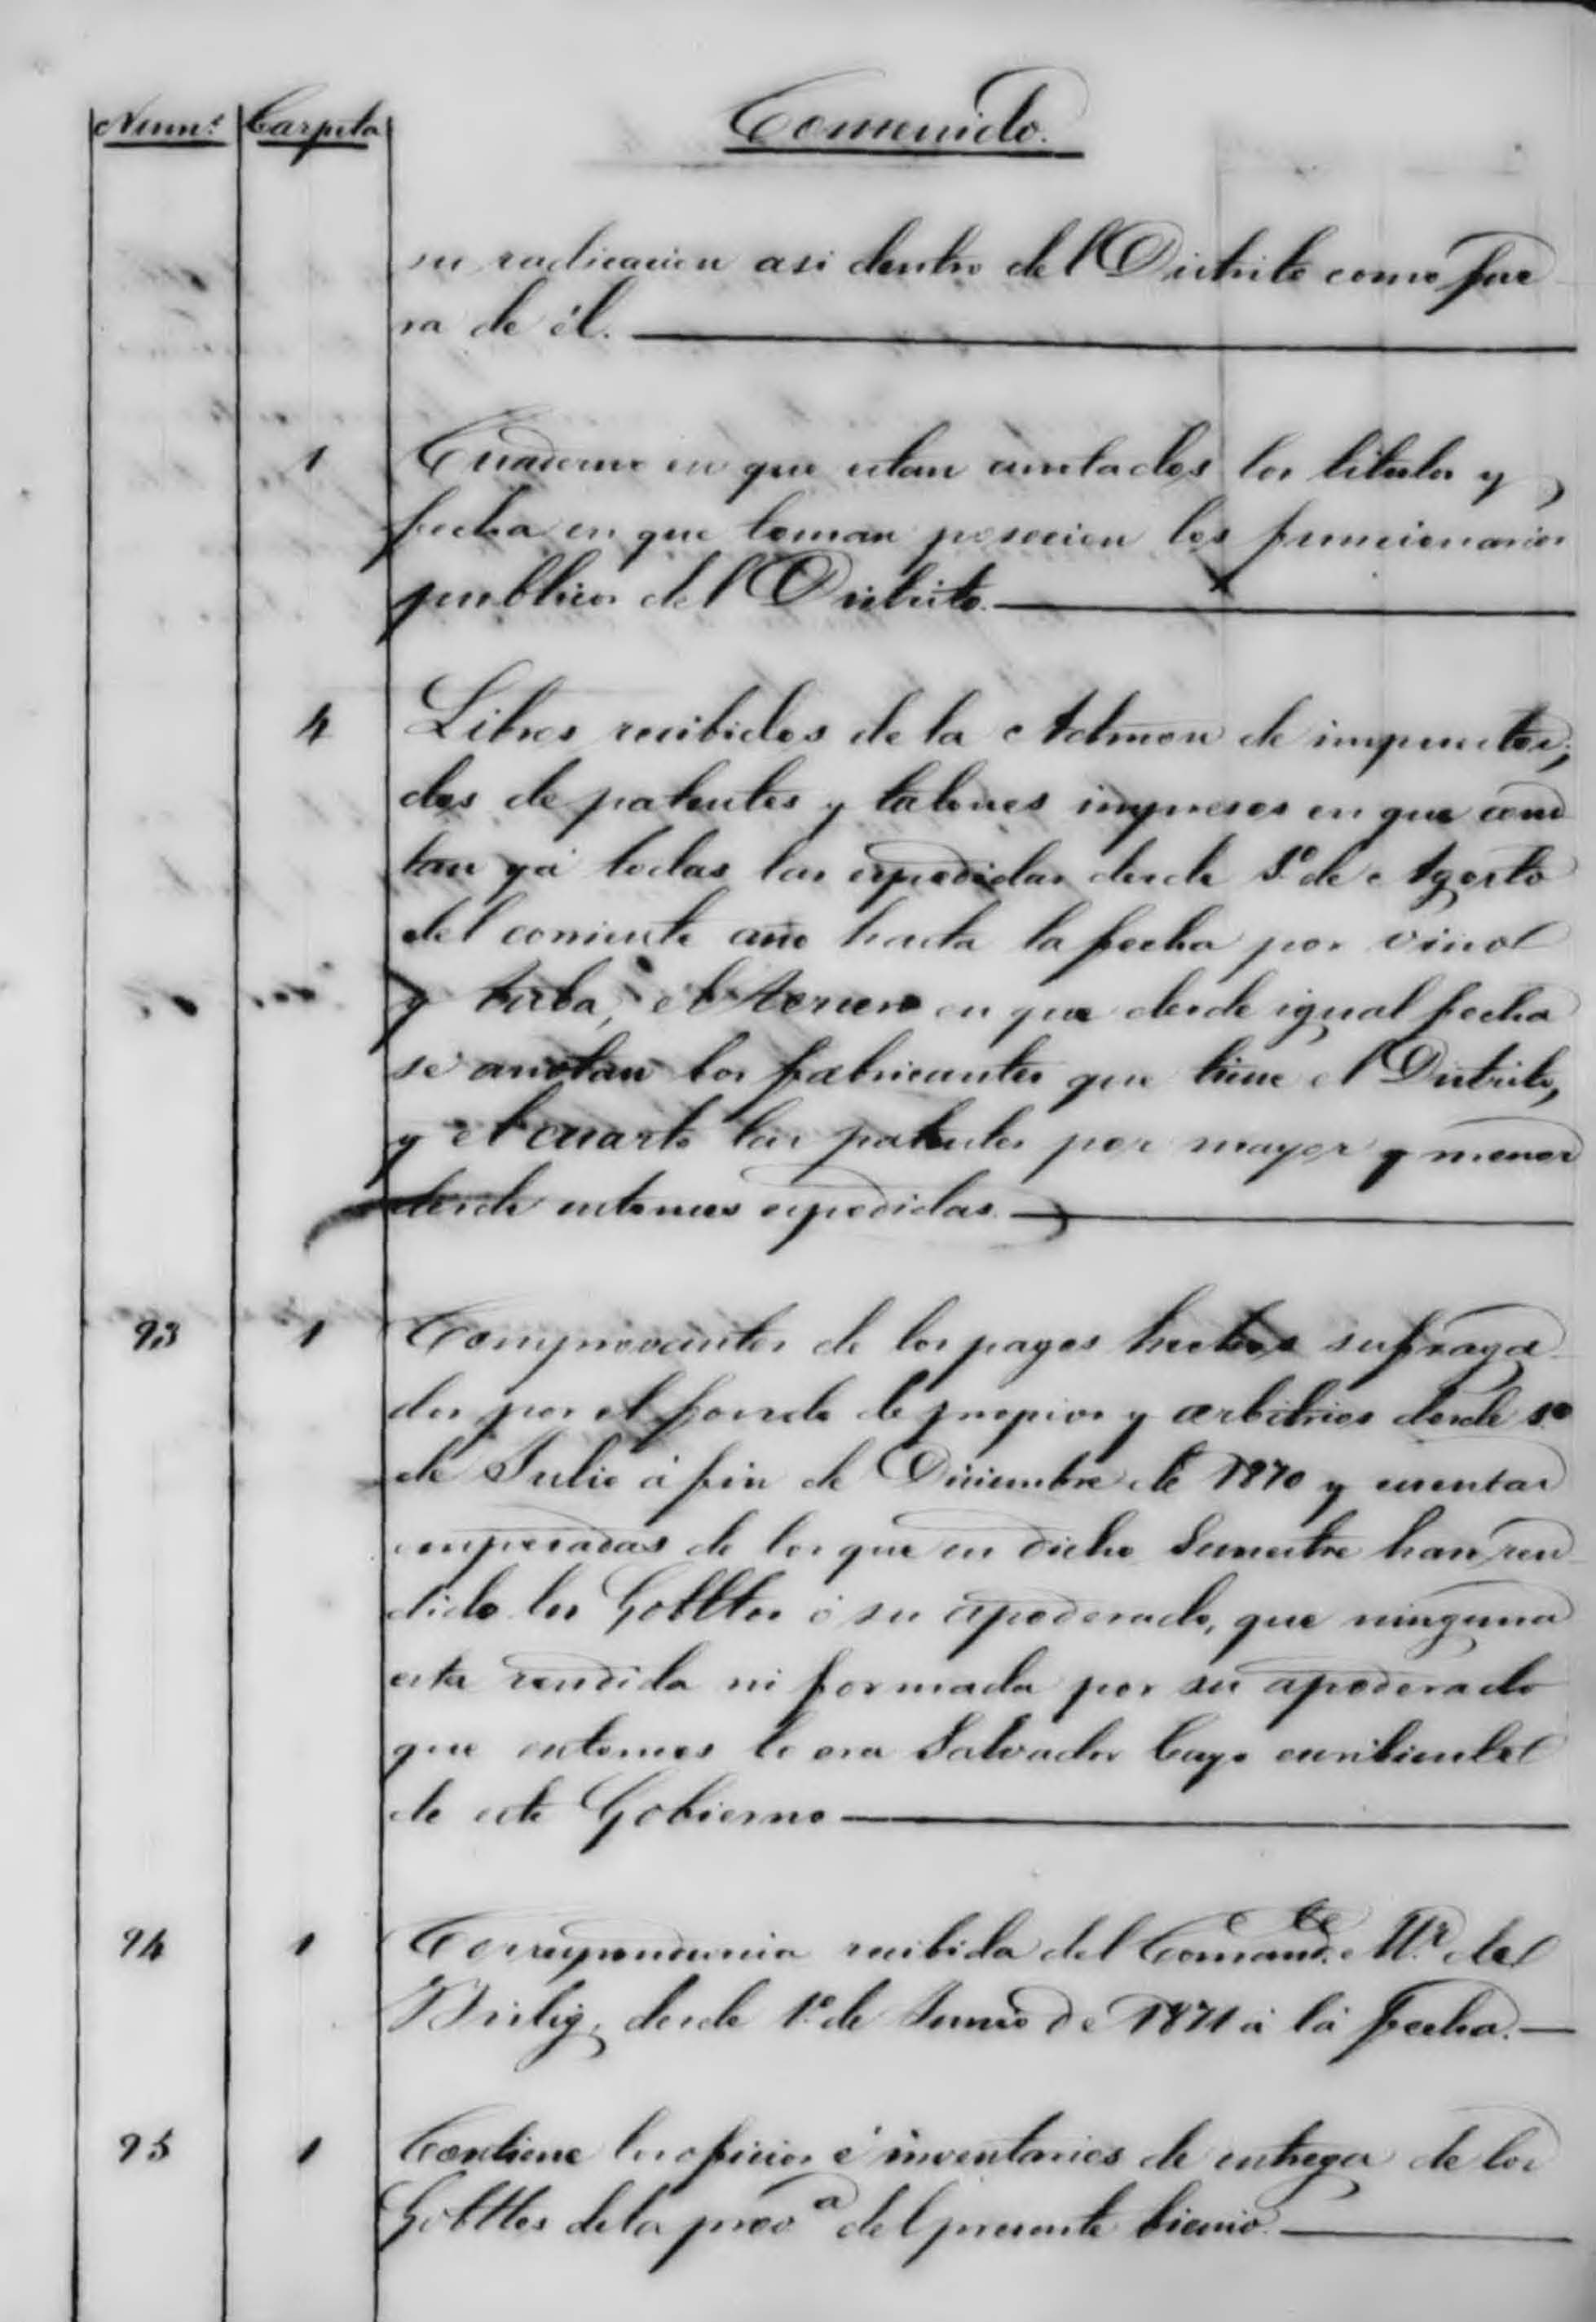 Numº Carpeta Contenido.
su radicacion asi dentro del Distrito como fue
ra de él.
1 Cuaderno en que estan anotados los titulos y
fecha en que toman posecion los funcionarios
publicos del Distrito.
4 Libros recibidos de la Admon de impuestos;
dos de patentes y talones impresos en que cons
tan ya todas las espedidas desde 1º de Agosto
del corriente año hasta la fecha por vino
y tuba, el tercero en que desde igual fecha
se anotan los fabricantes que tiene el Distrito,
y el cuarto las patentes por mayor y menor
desde entonces espedidas.
93 1 Comprovantes de los pagos hechos sufraga
dos por el fondo de propios y arbitrios desde 1º
de Julio á fin de Diciembre de 1870 y cuentas
empesadas de los que en dicho Semestre han ren
dido los Gobllos ó su apoderado, que ninguna
esta rendida ni formada por su apoderado
que entonces lo era Salvador Cayo escribiente
de este Gobierno
94 1 Correspondencia recibida del Comand.te Mr. de
desde 1º de Junio de 1871 á la fecha.
95 1 Contiene los oficios é inventarios de entrega de los
Gobllos de la provª del presente bienio.